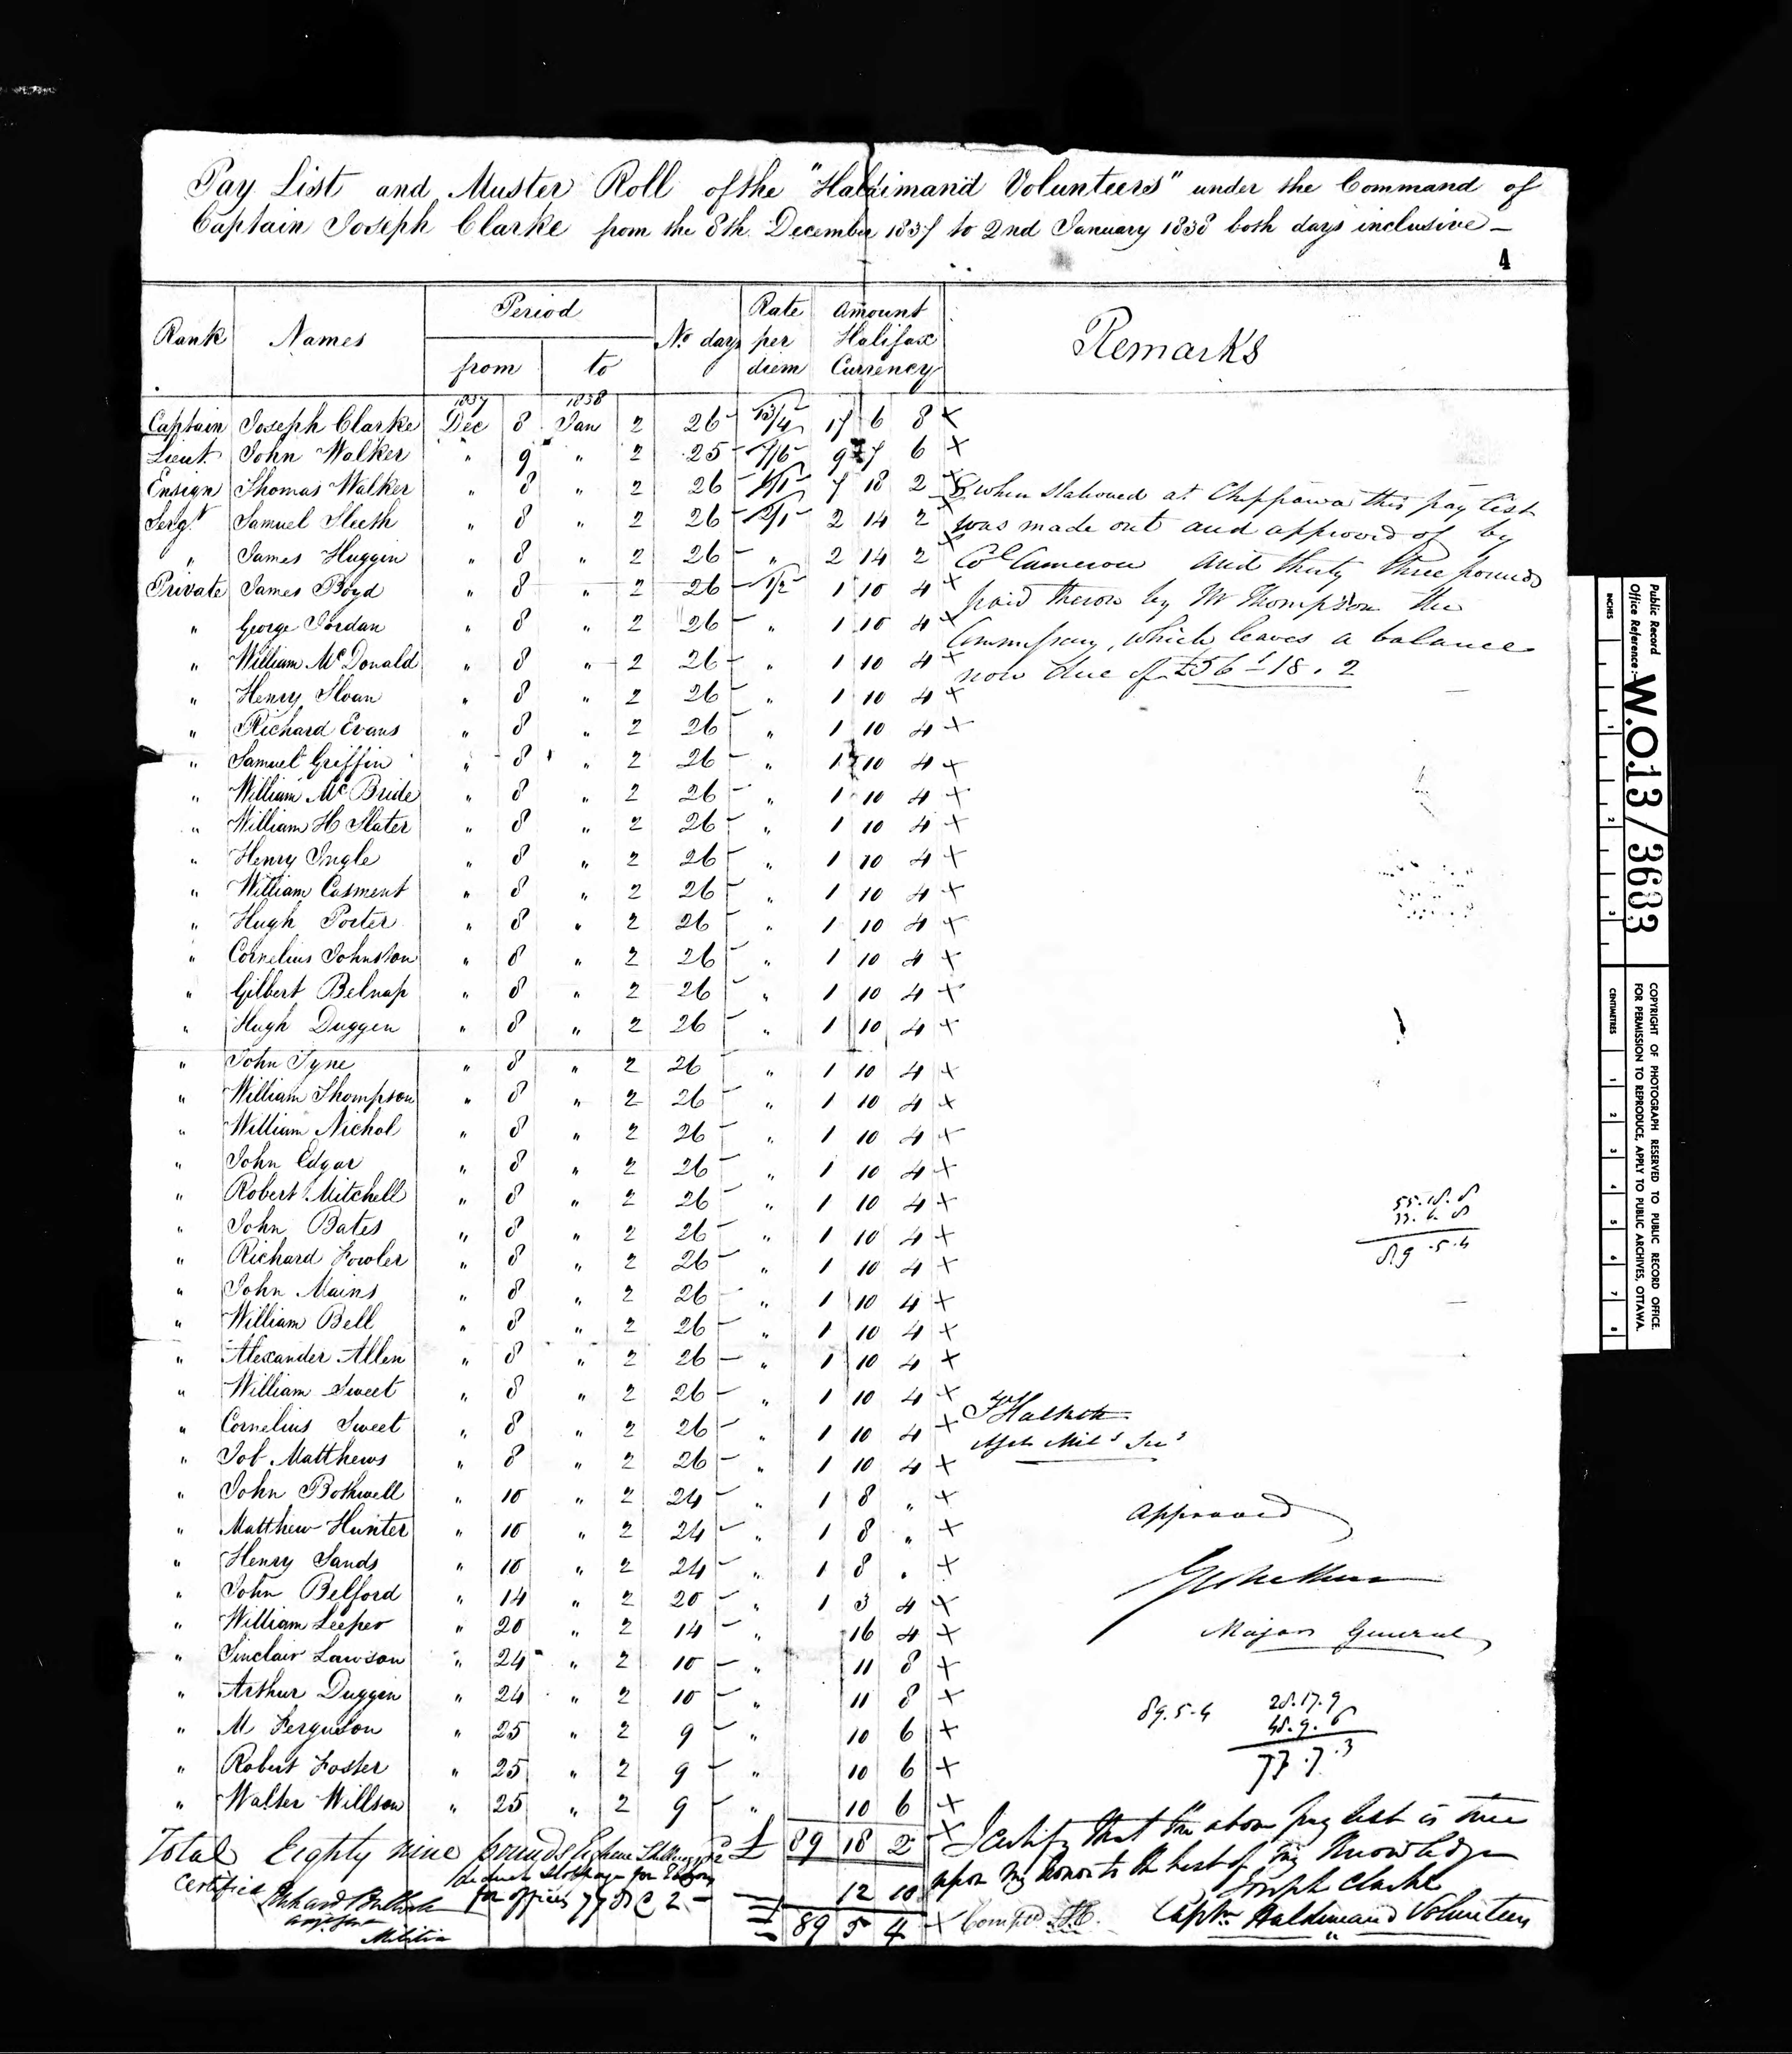 Pay List and Muster Roll of the "Haldimand Volunteers" under the Command of
Captain Joseph Clarke from the 8th December 1837 to 2nd January 1838 both days inclusive —
4
Rank Names Period No days Rate per diem Amount Halifax Currency Remarks
from to
1837 1838
Captain Joseph Clarke Dec 8 Jan 2 26 13/4 17 6 8 X
Lieut. John Walker " 9 " 2 25 7/6 9 7 6 X
Ensign Thomas Walker " 8 " 2 26 6/1 7 18 2 X
Sergt Samuel Sleeth " 8 " 2 26 2/1 2 14 2 X
" James Huggin " 8 " 2 26 " 2 14 2 X
Private James Boyd " 8 " 2 26 1/2 1 10 4 X
" George Jordan " 8 " 2 26 " 1 10 4 X
" William McDonald " 8 " 2 26 " 1 10 4 X
" Henry Sloan " 8 " 2 26 " 1 10 4 X
" Richard Evans " 8 " 2 26 " 1 10 4 X
" Samuel Griffin " 8 " 2 26 " 1 10 4 X
" William McBride " 8 " 2 26 " 1 10 4 X
" William H Slater " 8 " 2 26 " 1 10 4 X
" Henry Ingle " 8 " 2 26 " 1 10 4 X
" William Casment " 8 " 2 26 " 1 10 4 X
" Hugh Porter " 8 " 2 26 " 1 10 4 X
" Cornelius Johnston " 8 " 2 26 " 1 10 4 X
" Gilbert Belnap " 8 " 2 26 " 1 10 4 X
" Hugh Duggen " 8 " 2 26 " 1 10 4 X
" John Tyne " 8 " 2 26 " 1 10 4 X
" William Thompson " 8 " 2 26 " 1 10 4 X
" William Nichol " 8 " 2 26 " 1 10 4 X
" John Edgar " 8 " 2 26 " 1 10 4 X
" Robert Mitchell " 8 " 2 26 " 1 10 4 X
" John Bates " 8 " 2 26 " 1 10 4 X
" Richard Fowler " 8 " 2 26 " 1 10 4 X
" John Mains " 8 " 2 26 " 1 10 4 X
" William Bell " 8 " 2 26 " 1 10 4 X
" Alexander Allen " 8 " 2 26 " 1 10 4 X
" William Sweet " 8 " 2 26 " 1 10 4 X
" Cornelius Sweet " 8 " 2 26 " 1 10 4 X
" Job Matthews " 8 " 2 26 " 1 10 4 X
" John Bothwell " 10 " 2 24 " 1 8 " X
" Matthew Hunter " 10 " 2 24 " 1 8 " X
" Henry Sands " 10 " 2 24 " 1 8 " X
" John Belford " 14 " 2 20 " 1 3 4 X
" William Leeper " 20 " 2 14 " 16 4 X
" Sinclair Lawson " 24 " 2 10 " 11 8 X
" Arthur Duggen " 24 " 2 10 " 11 8 X
" M Ferguson " 25 " 2 9 " 10 6 X
" Robert Foster " 25 " 2 9 " 10 6 X
" Walter Willson " 25 " 2 9 " 10 6 X
Total Eighty nine pounds £ 89 18 2 X
12 10
89 5 4 X
for officers
Militia
when stationed at Chippawa this pay list
was made out and approved of by
Col Cameron and thirty three pounds
paid theron by Mr Thompson the
Commissary, which leaves a balance
now due of £56 - 18. 2
55.18.8
33.6.8
89.5.4
Approved
Major General
89.5.4
28.17.9
48.9.6
77.7.3
I certify that the above pay list is true
upon my honor to the best of my Knowledge
Joseph Clarke
Captn Haldimand Volunteers
Public Record
Office Reference:-
W.O.13/3683
INCHES
1 2 3
CENTIMETRES
1 2 3 4 5 6 7 8
COPYRIGHT OF PHOTOGRAPH RESERVED TO PUBLIC RECORD OFFICE.
FOR PERMISSION TO REPRODUCE, APPLY TO PUBLIC ARCHIVES, OTTAWA.